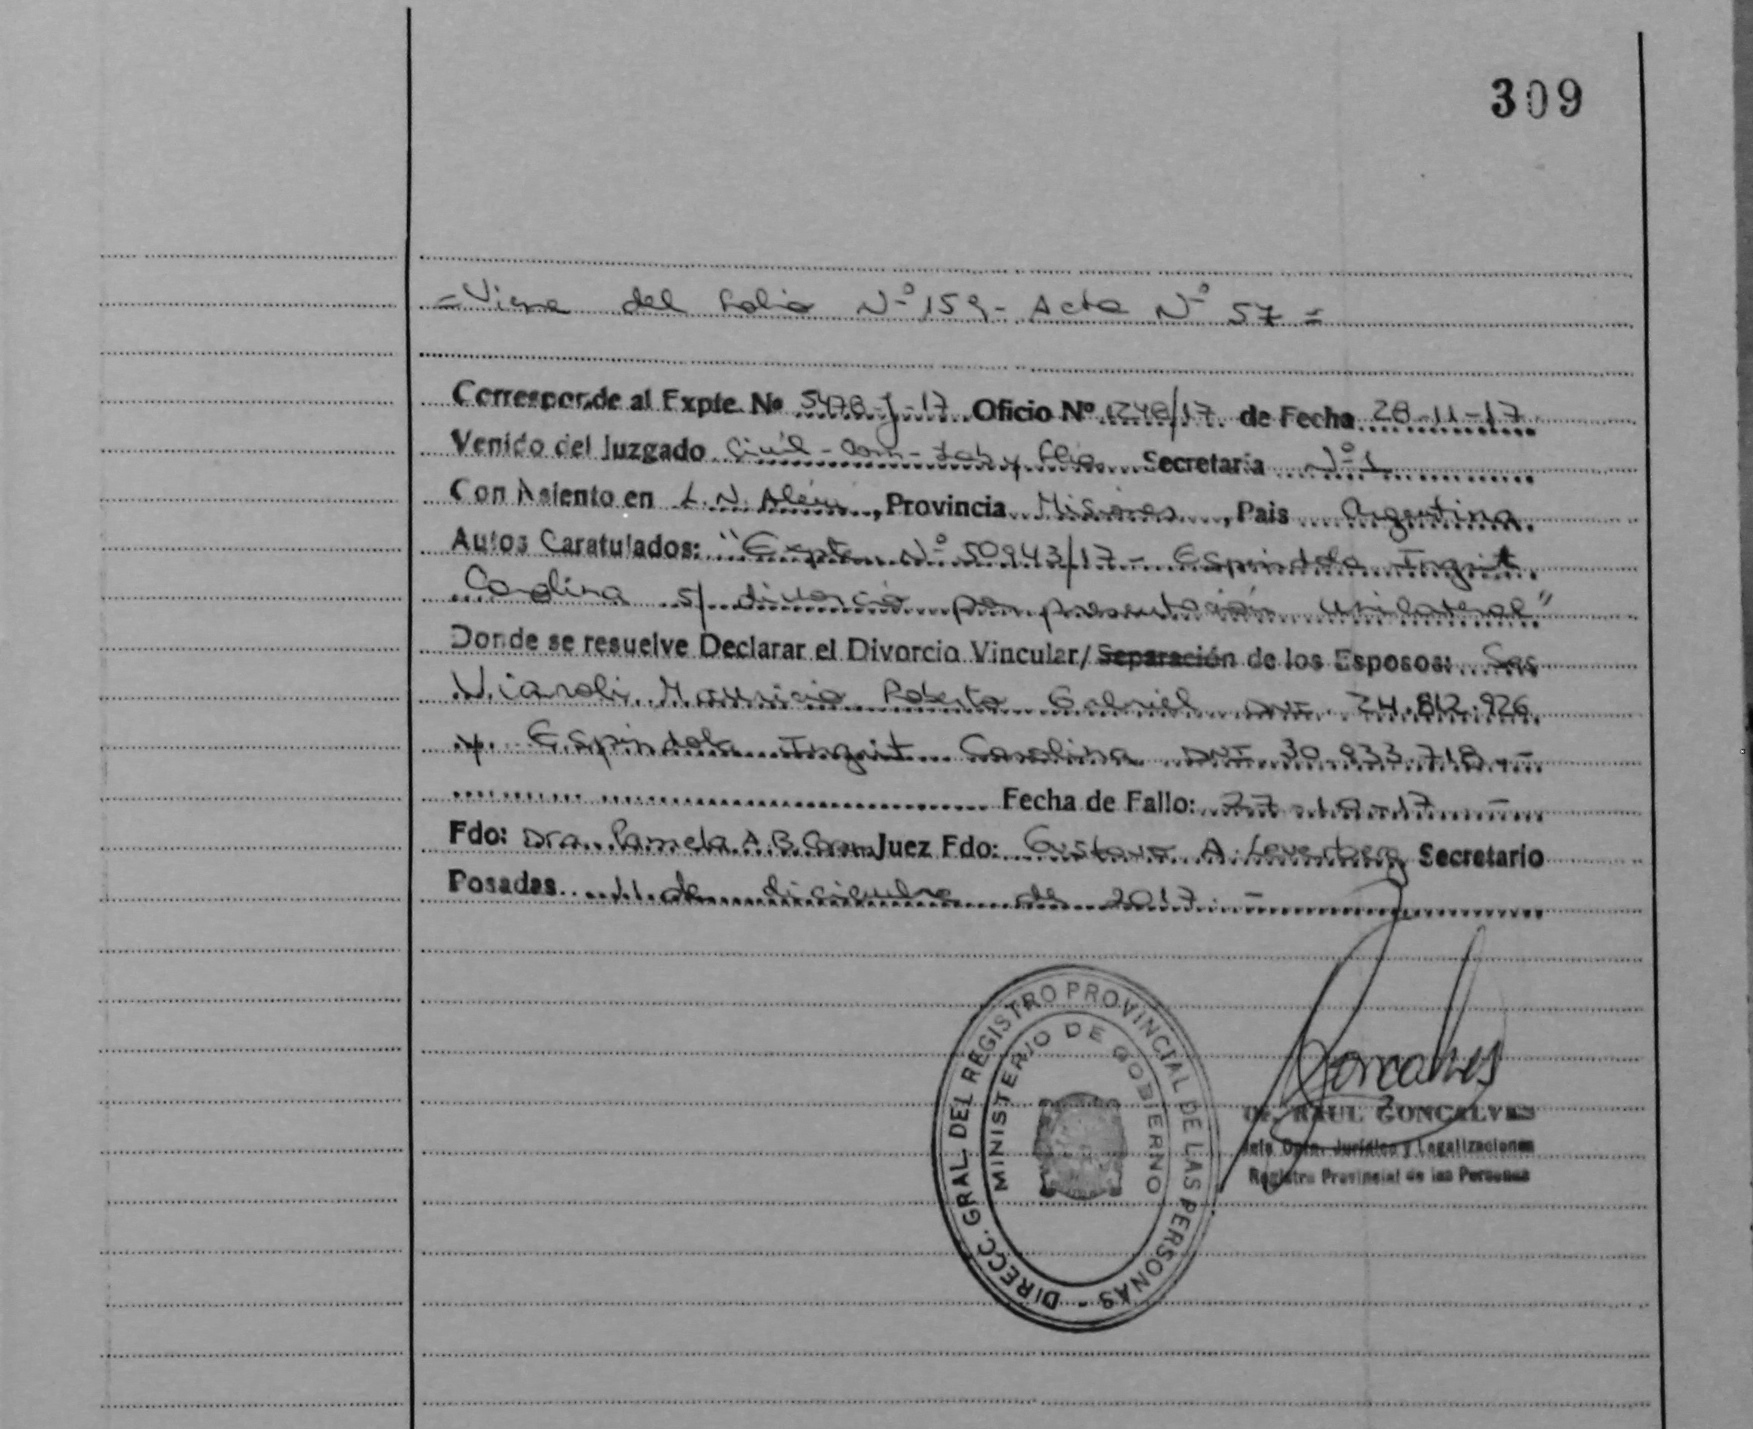 309
= Viene del folio Nº 159 - Acta Nº 57 =
Corresponde al Expte. Nº 5478-J-17 Oficio Nº 1248/17 de Fecha 28-11-17
Venido del Juzgado Civil - Com - Lab y Flia Secretaría Nº 1
Con Asiento en L. N. Alem, Provincia Misiones, Pais Argentina.
Autos Caratulados: "Expte. Nº 50943/17 - Espindola Ingrit
Carolina s/ divorcio por presentación unilateral"
Donde se resuelve Declarar el Divorcio Vincular/Separación de los Esposos: Sres
Viaroli Mauricio Roberto Gabriel DNI 24.812.926
y Espindola Ingrit Carolina DNI 30.933.718.-
Fecha de Fallo: 27-10-17 -
Fdo: Dra. Pamela A. B. Juez Fdo: Gustavo A. Secretario
Posadas 11 de diciembre de 2017.-
DIRECC. GRAL. DEL REGISTRO PROVINCIAL DE LAS PERSONAS -
MINISTERIO DE GOBIERNO
Dr. RAUL GONCALVES
Jefe Dpto. Jurídico y Legalizaciones
Registro Provincial de las Personas